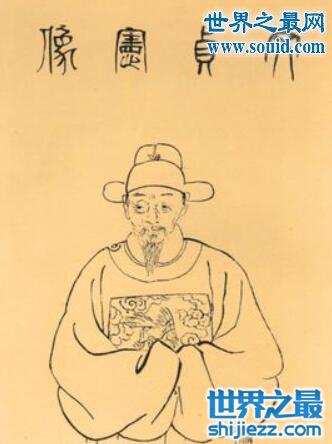 世界之最网
www.souid.com
貞憲像
世界之最
shijiezz.com